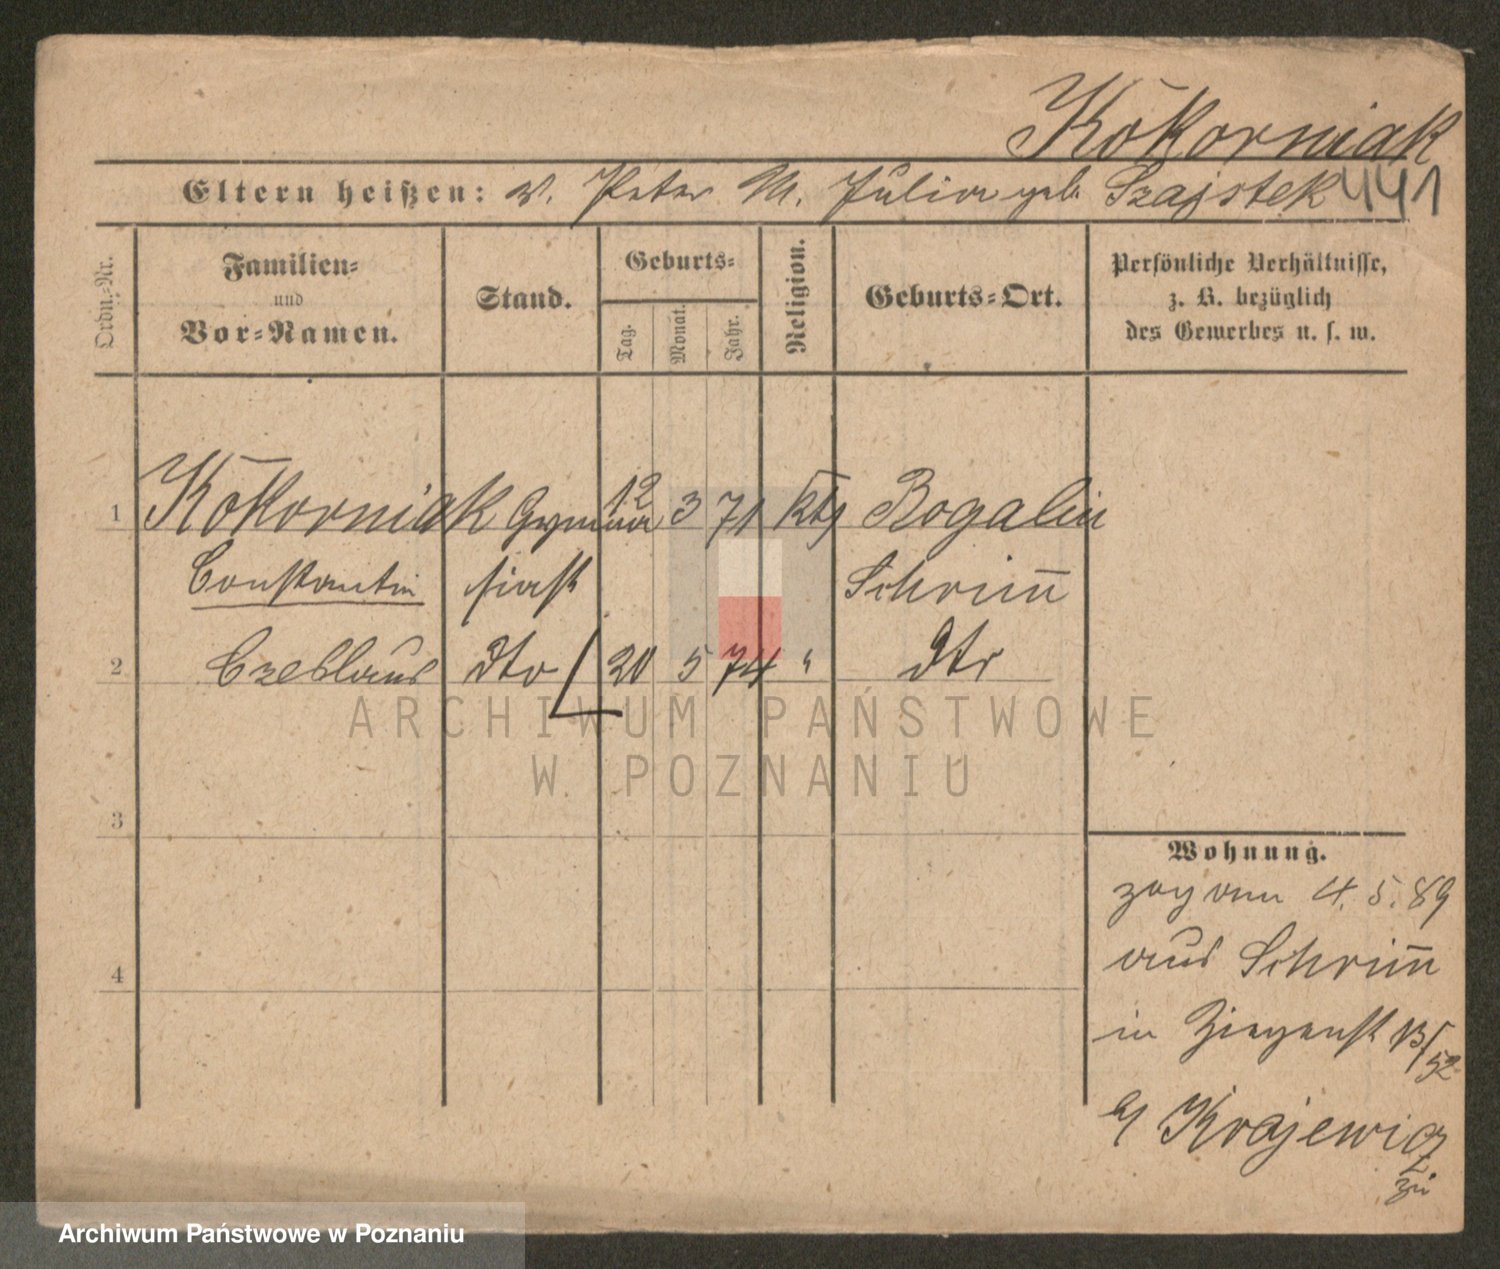 Kokorniak
Eltern heißen: V. Peter M. Julia geb. Szajstek 441
Ordn.-Nr.
Familien-
und
Vor-Namen.
Stand.
Geburts-
Tag.
Monat.
Jahr.
Religion.
Geburts-Ort.
Persönliche Verhältnisse,
z. B. bezüglich
des Gewerbes u. s. w.
1 Kokorniak Gymna 12 3 71 kth Rogalin
Constantin siast Schrim̅
2 Czeslaus dto 20 5 74 " dto
3
Wohnung.
zog am 4. 5. 89
aus Schrim̅
4
in Ziegenst 13/52
b/ Krajewicz
zu
ARCHIWUM PAŃSTWOWE
W POZNANIU
Archiwum Państwowe w Poznaniu